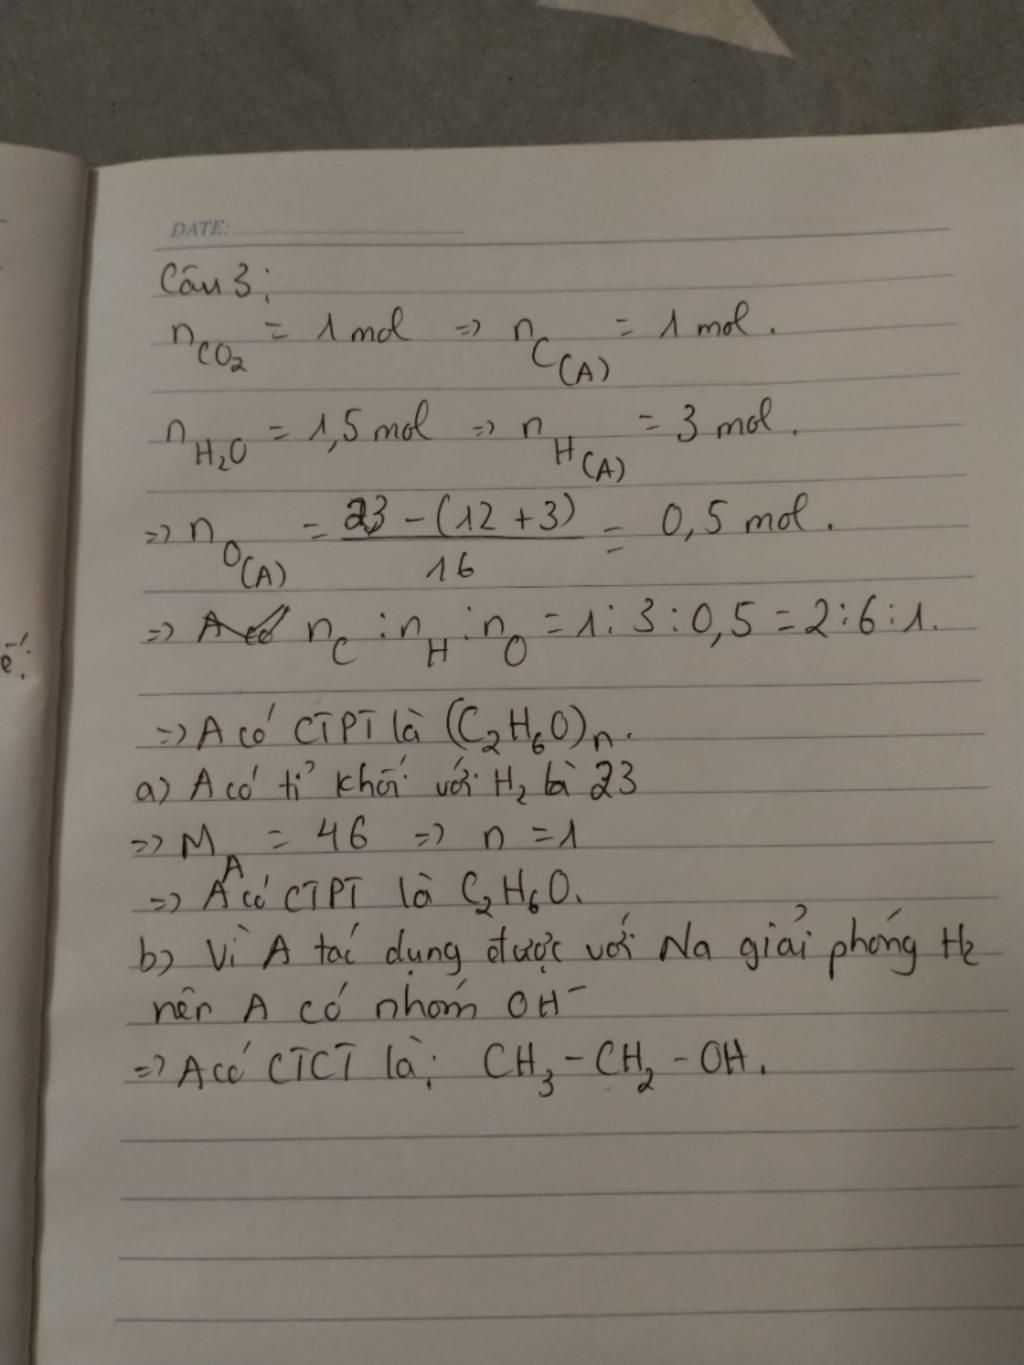 DATE:
Câu 3:
n CO₂ = 1 mol => n C(A) = 1 mol.
n H₂O = 1,5 mol => n H(A) = 3 mol.
=> n O(A) = (23 - (12 + 3))/16 = 0,5 mol.
=> n C : n H : n O = 1 : 3 : 0,5 = 2 : 6 : 1.
=> A có CTPT là (C₂H₆O)n.
a) A có tỉ khối với H₂ là 23
=> M A = 46 => n = 1
=> A có CTPT là C₂H₆O.
b) Vì A tác dụng được với Na giải phóng H₂
nên A có nhóm OH⁻
=> A có CTCT là: CH₃ - CH₂ - OH.